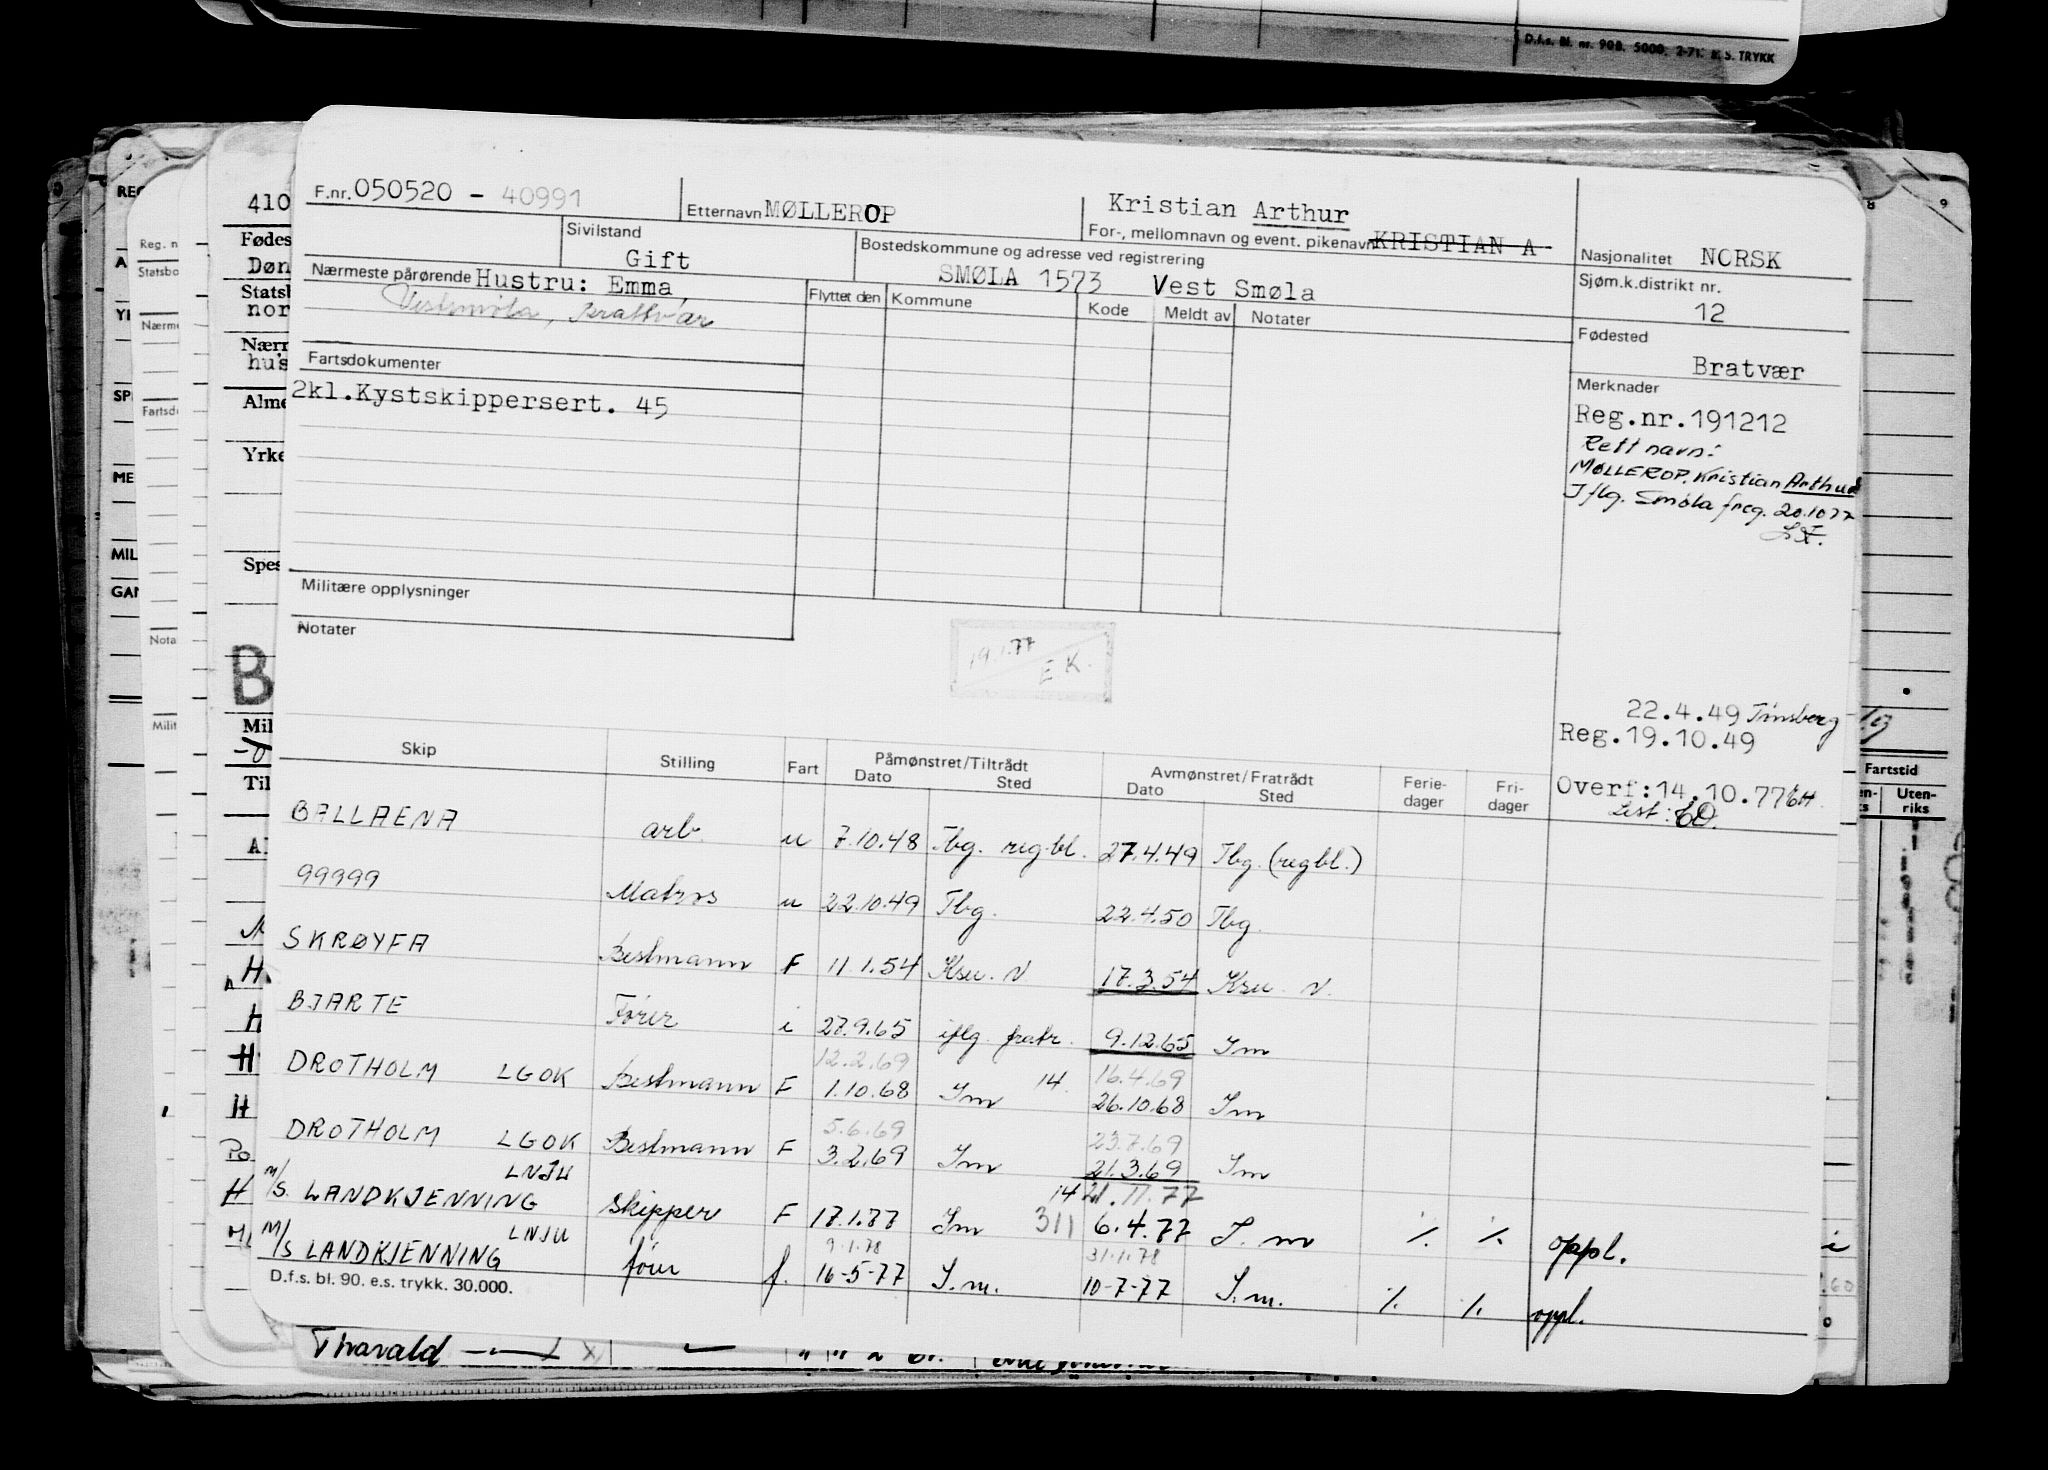 D.f.s. Bl. nr. 90B. 5000. 2-71. E.S. TRYKK
F.nr. 050520 - 40991
Etternavn MØLLEROP
Kristian Arthur
For-, mellomnavn og event. pikenavn KRISTIAN A
Nasjonalitet NORSK
Sivilstand
Gift
Bostedskommune og adresse ved registrering
SMØLA 1573 Vest Smøla
Sjøm.k.distrikt nr.
12
Nærmeste pårørende Hustru: Emma
Vestsmøla, Brattvær
Flyttet den Kommune Kode Meldt av Notater
Fødested
Bratvær
Fartsdokumenter
2kl.Kystskippersert. 45
Merknader
Reg.nr.191212
Rett navn:
MØLLEROP, Kristian Arthur
Iflg. Smøla freg. 20.10 77
Militære opplysninger
Notater
19.1.77
E K.
22.4.49 Tønsberg
Reg.19.10.49
Overf:14.10.77
Skip Stilling Fart Påmønstret/Tiltrådt Avmønstret/Fratrådt Ferie- Fri-
Dato Sted Dato Sted dager dager
BALLAENA arb. u 7.10.48 Tbg. regbl. 27.4.49 Tbg. (regbl.)
99999 Matros u 22.10.49 Tbg. 22.4.50 Tbg.
SKRØYFA Bestmann F 11.1.54 Ksu. N 17.3.54 Ksu. N.
BJARTE Fører i 27.9.65 iflg. fratr. 9.12.65 Im
12.2.69 16.4.69
DROTHOLM LGOK Bestmann F 1.10.68 Im 14 26.10.68 Im
5.6.69 23.7.69
DROTHOLM LGOK Bestmann F 3.2.69 Im 21.3.69 Im
LNJU 14 21.11.77
M/S. LANDKJENNING Skipper F 17.1.77 Im 311 6.4.77 I.m ٪ ٪ oppl.
LNJU 9.1.78 31.1.78
M/S LANDKJENNING fører f. 16-5-77 I.m. 10-7-77 I.m. ٪ ٪ oppl.
D.f.s. bl. 90. e.s. trykk. 30.000.
Fartstid
Uten-
riks
Thorvald